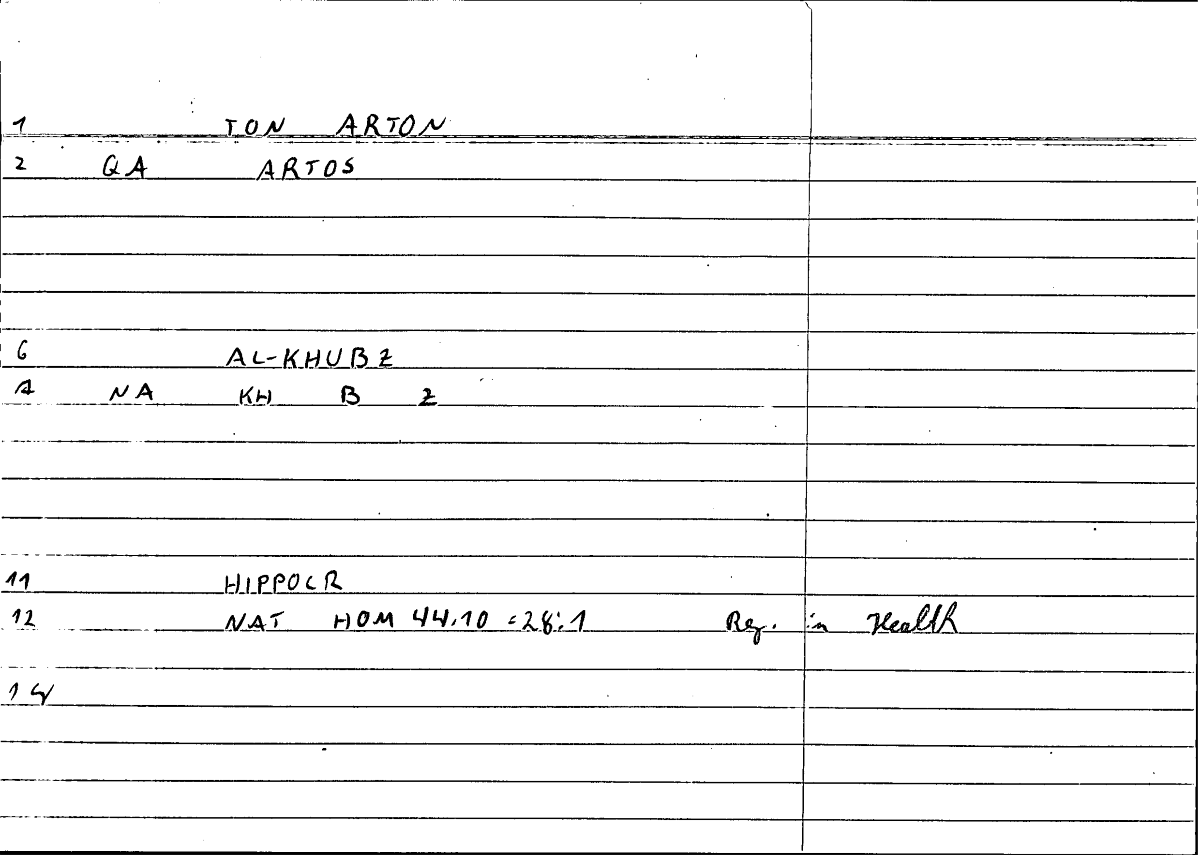 1 TON ARTON
2 QA ARTOS
6 AL-KHUBZ
A NA KH B Z
11 HIPPOCR
12 NAT HOM 44.10 = 28:1 Reg. in Health
14